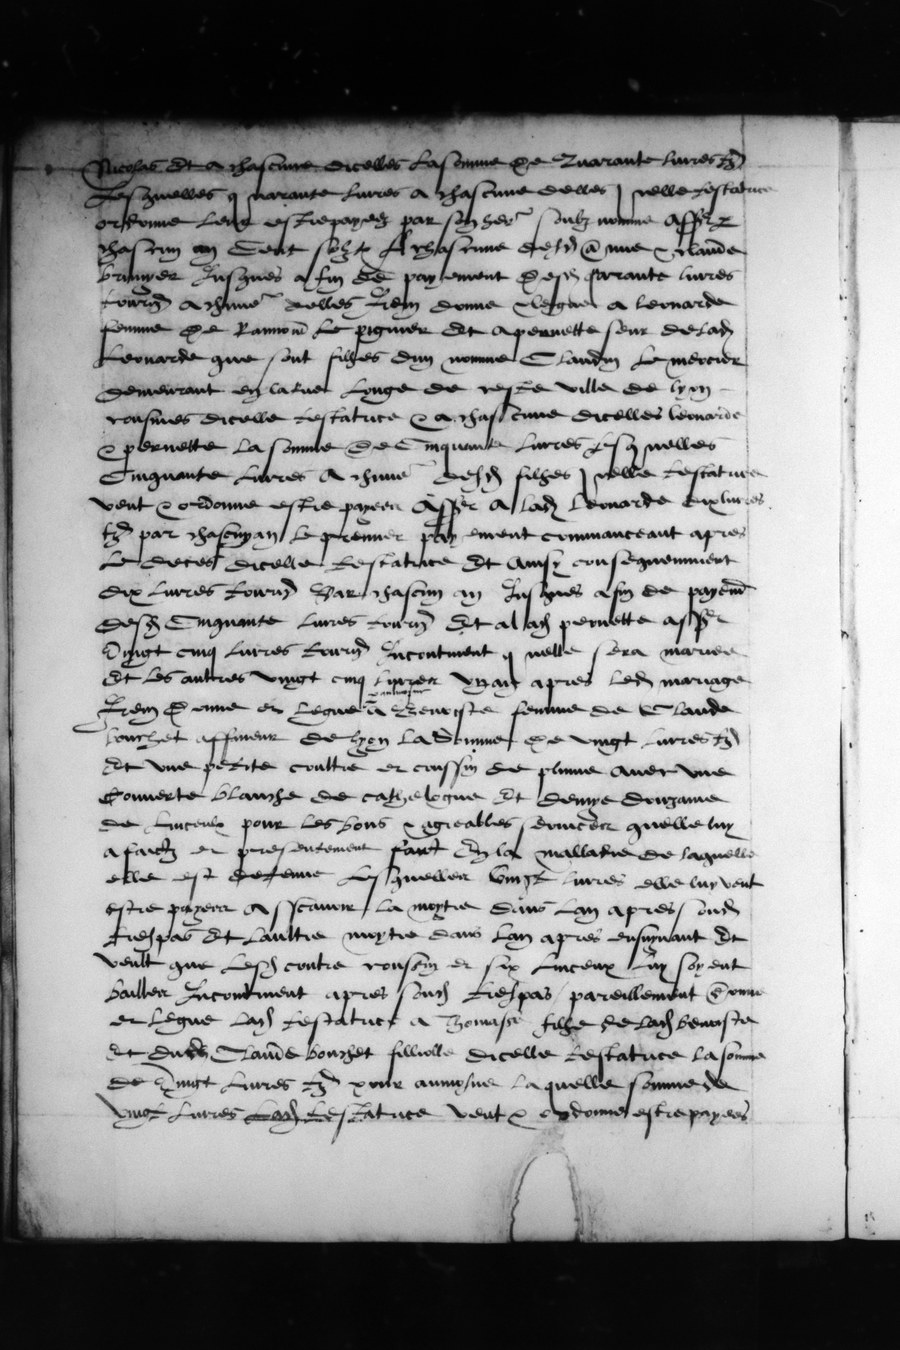 Nicolas Et a chascune dicelles la somme de Quarante livres tz
Lesquelles quarante livres a chascune delles icelle testatrice
ordonne leur estre payez par son her soubz nomme Assr
chascun an Cent solz a chascune desd Anne Claude
jusques a fin de payement desd quarante livres
tourn a chune delles Item donne legue a Leonarde
femme de Ramond le pignier Et a pernette seur de lad
Leonarde que sont filhes dun nomme Claudin le mercier
demeurant en la rue Longe de ceste ville de lyon
cousines dicelle testatrice & a chascune dicelles leonarde
& pernette la somme de Cinquante livres Lesquelles
Cinquante livres A chune desd filhes icelle testatrice
veut & ordonne estre payees Assr A lad Leonarde dix livres
tz par chascun an le premier payement commanceant apres
le deces dicelle testatrice Et ainsy consequemment
dix livres tourn Par chascun an Jusques a fin de payemt
desd Cinquante livres tourn Et a lad pernette assr
Vingt cinq livres tourn Incontinent quelle sera mariee
Et les aultres vingt cinq livres ung an apres led mariage
Item donne et legue a Benoiste femme de Claude
bouchet affineur de lyon la somme de vingt livres tz
Et une petite coultre et coussin de plume avec une
Couverte blanche de cathelogne Et demye douzaine
de linceulx pour les bons & agreables services quelle luy
a faictz et presentement faict En la malladie de laquelle
elle est detenue Lesquelles vingt livres elle luy veut
estre payees Assavoir la moytie dans lan apres soud
trespas Et laultre moytie dans lan apres ensuyvant Et
veult que lesd coutre coussin et six linceux luy soyent
baillez Incontinent apres soud trespas pareillement Donne
et legue lad testatrice a Thomasse filhe de lad benoiste
Et dud Claude bouchet filliolle dicelle testatrice la somme
de Vingt livres tz pour aumosne laquelle somme de
vingt livres lad testatrice veut & ordonne estre payees